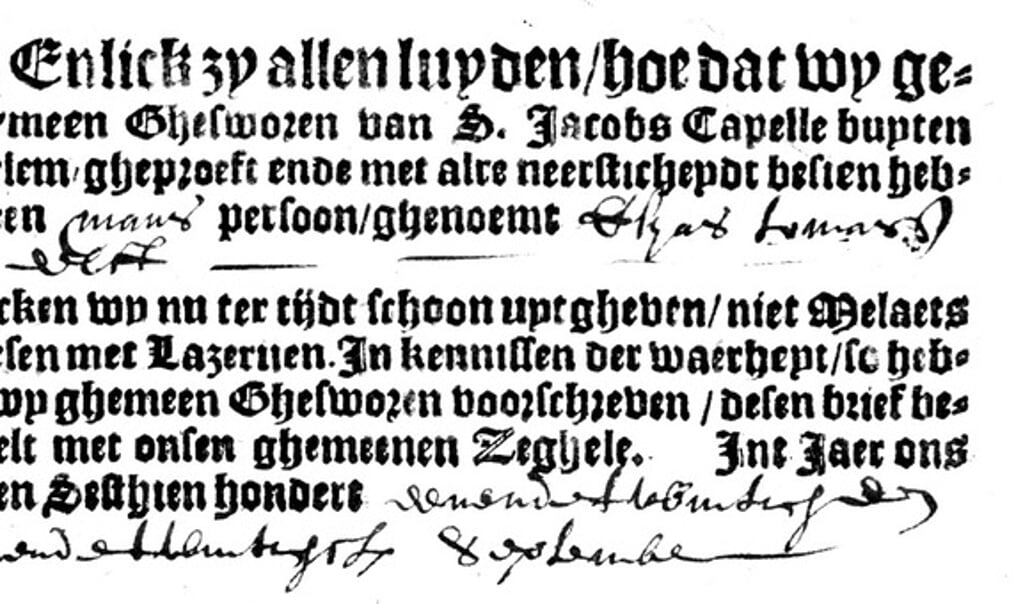 Enlick zy allen luyden/hoe dat wy ge=
meen Ghesworen van S. Jacobs Capelle buyten
lem/gheproeft ende met alre neersticheydt besien heb=
een mans persoon/ghenoemt Elyas tomass
Delft
cken wy nu ter tijdt schoon uytgheven/niet Melaets
esen met Lazeruen. In kennissen der waerheyt/so heb=
wy ghemeen Ghesworen voorschreven / desen brief be=
elt met onsen ghemeenen Zeghele. Int Jaer ons
en Sesthien hondert eenendetwintich Den
eendetwintichste September